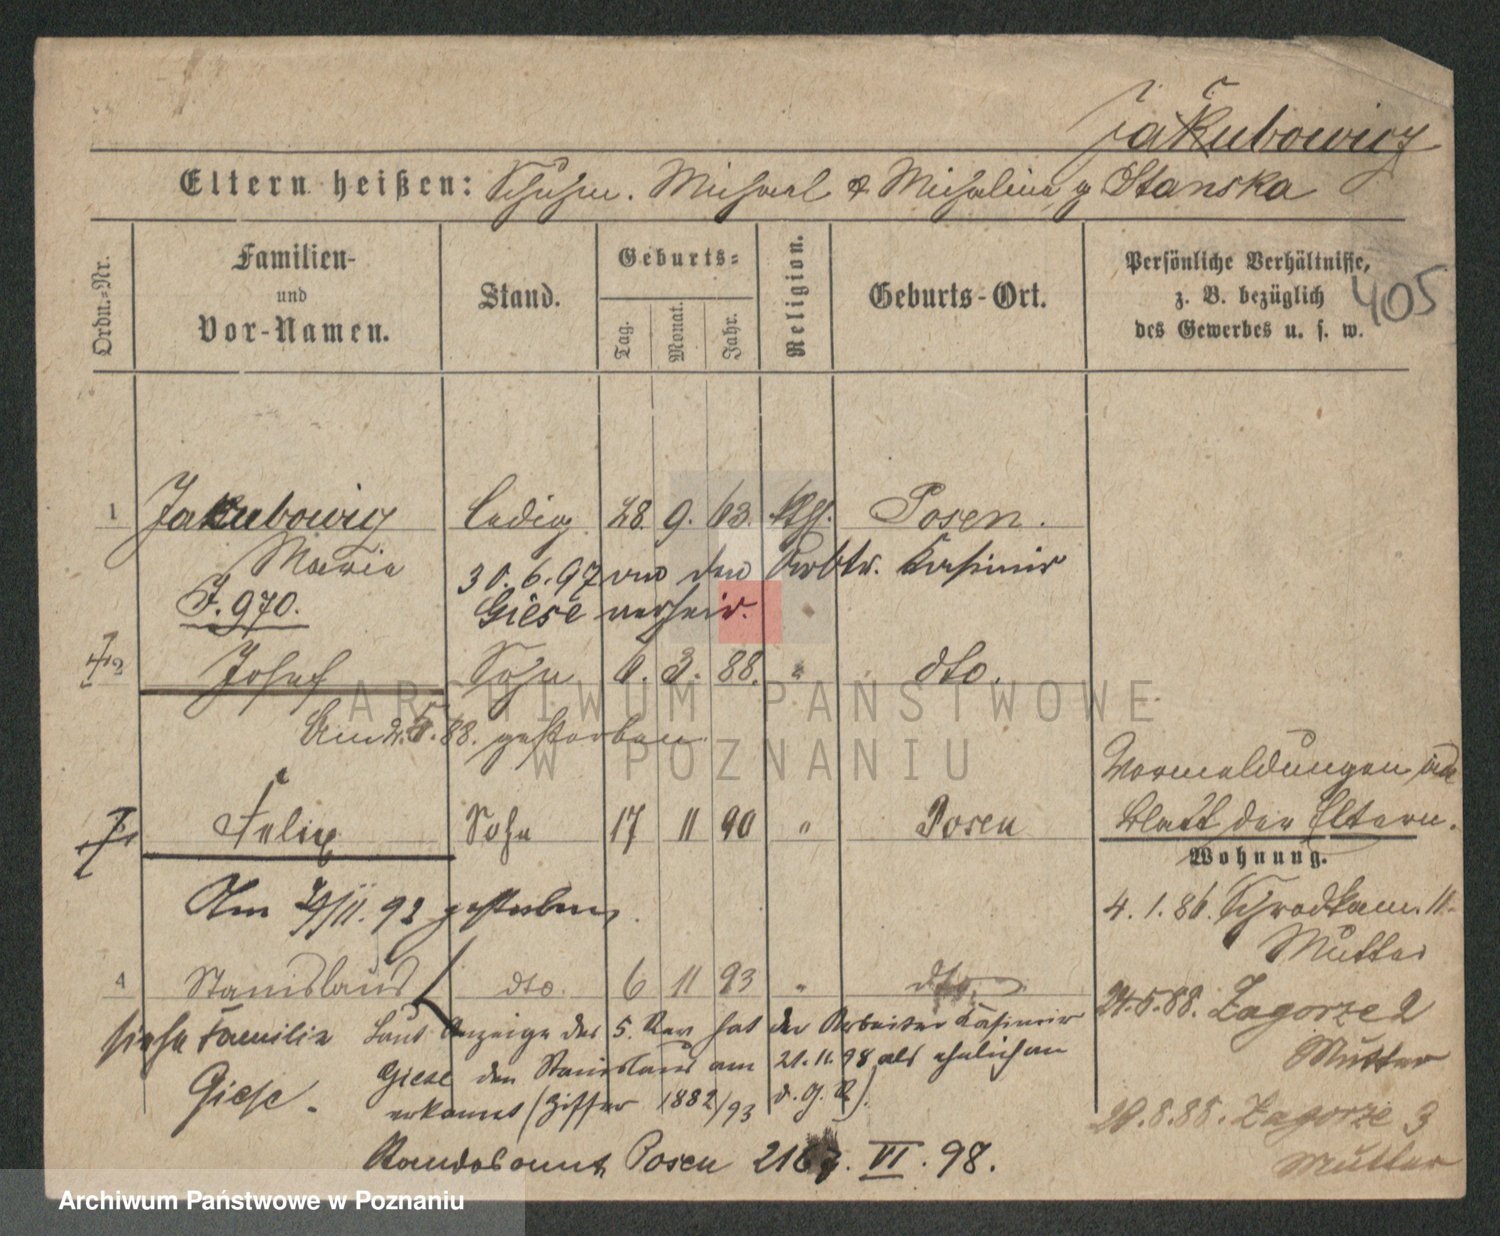 Jakubowicz
Eltern heißen: Schuhm. Michael & Michalina g Stanska
Ordn.-Nr.
Familien-
und
Vor-Namen.
Stand.
Geburts-
Tag.
Monat.
Jahr.
Religion.
Geburts-Ort.
Persönliche Verhältnisse,
z. B. bezüglich
des Gewerbes u. s. w.
405
1 Jakubowicz ledig 28. 9. 63. kth. Posen.
Maria 30. 6. 97 den Arbtr. Kasimir
J. 970. Giese verheir.
2 Josef Sohn 1. 3. 88. " dto.
Am 2. 5. 88. gestorben
Vormeldungen
Blatt der Eltern.
Felix Sohn 17 11 90 " Posen
Wohnung.
Am 29/11. 92 gestorben.
4. 1. 86. Schrodkam. 11.
Mutter
4 Stanislaus dto. 6 11 93 " dto.
24.5.88. Zagorze 2
Mutter
siehe Familie
Giese.
Laut Anzeige des 5. Rev hat der Arbeiter Kasimir
Giese den Stanislaus am 21.11.98 als ehelich an
erkannt (Ziffer 1882/93 d. J. R.)
20.8.88. Zagorze 3
Mutter
Standesamt Posen VI. 98.
ARCHIWUM PAŃSTWOWE
W POZNANIU
Archiwum Państwowe w Poznaniu